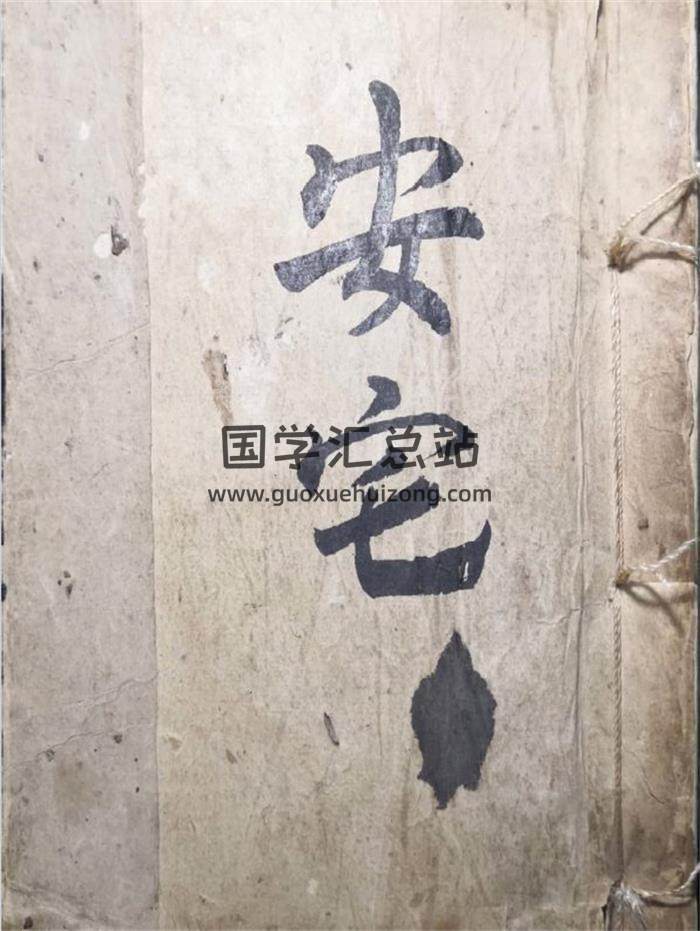 安宅
国学汇总站
www.guoxuehuizong.com